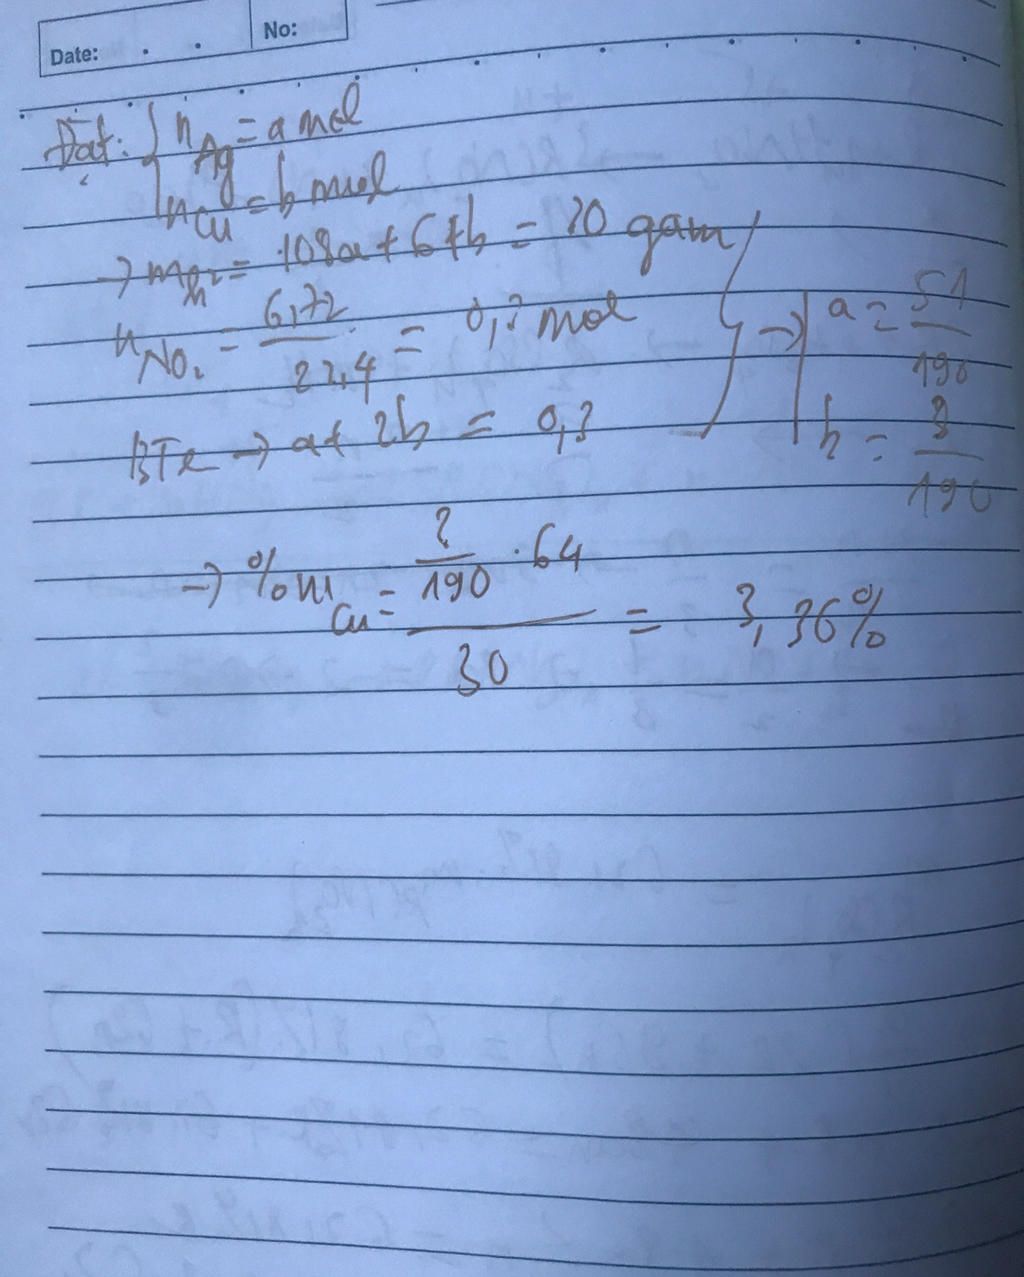 Date: . . No:
Đặt: { n_Ag = a mol
n_Cu = b mol
→ m_hh = 108a + 64b = 30 gam
n_NO₂ = 6,72 / 22,4 = 0,3 mol
BTe → a + 2b = 0,3
→ a = 51/190
b = 3/190
→ %m_Cu = 3/190 . 64 / 30 = 3,36%